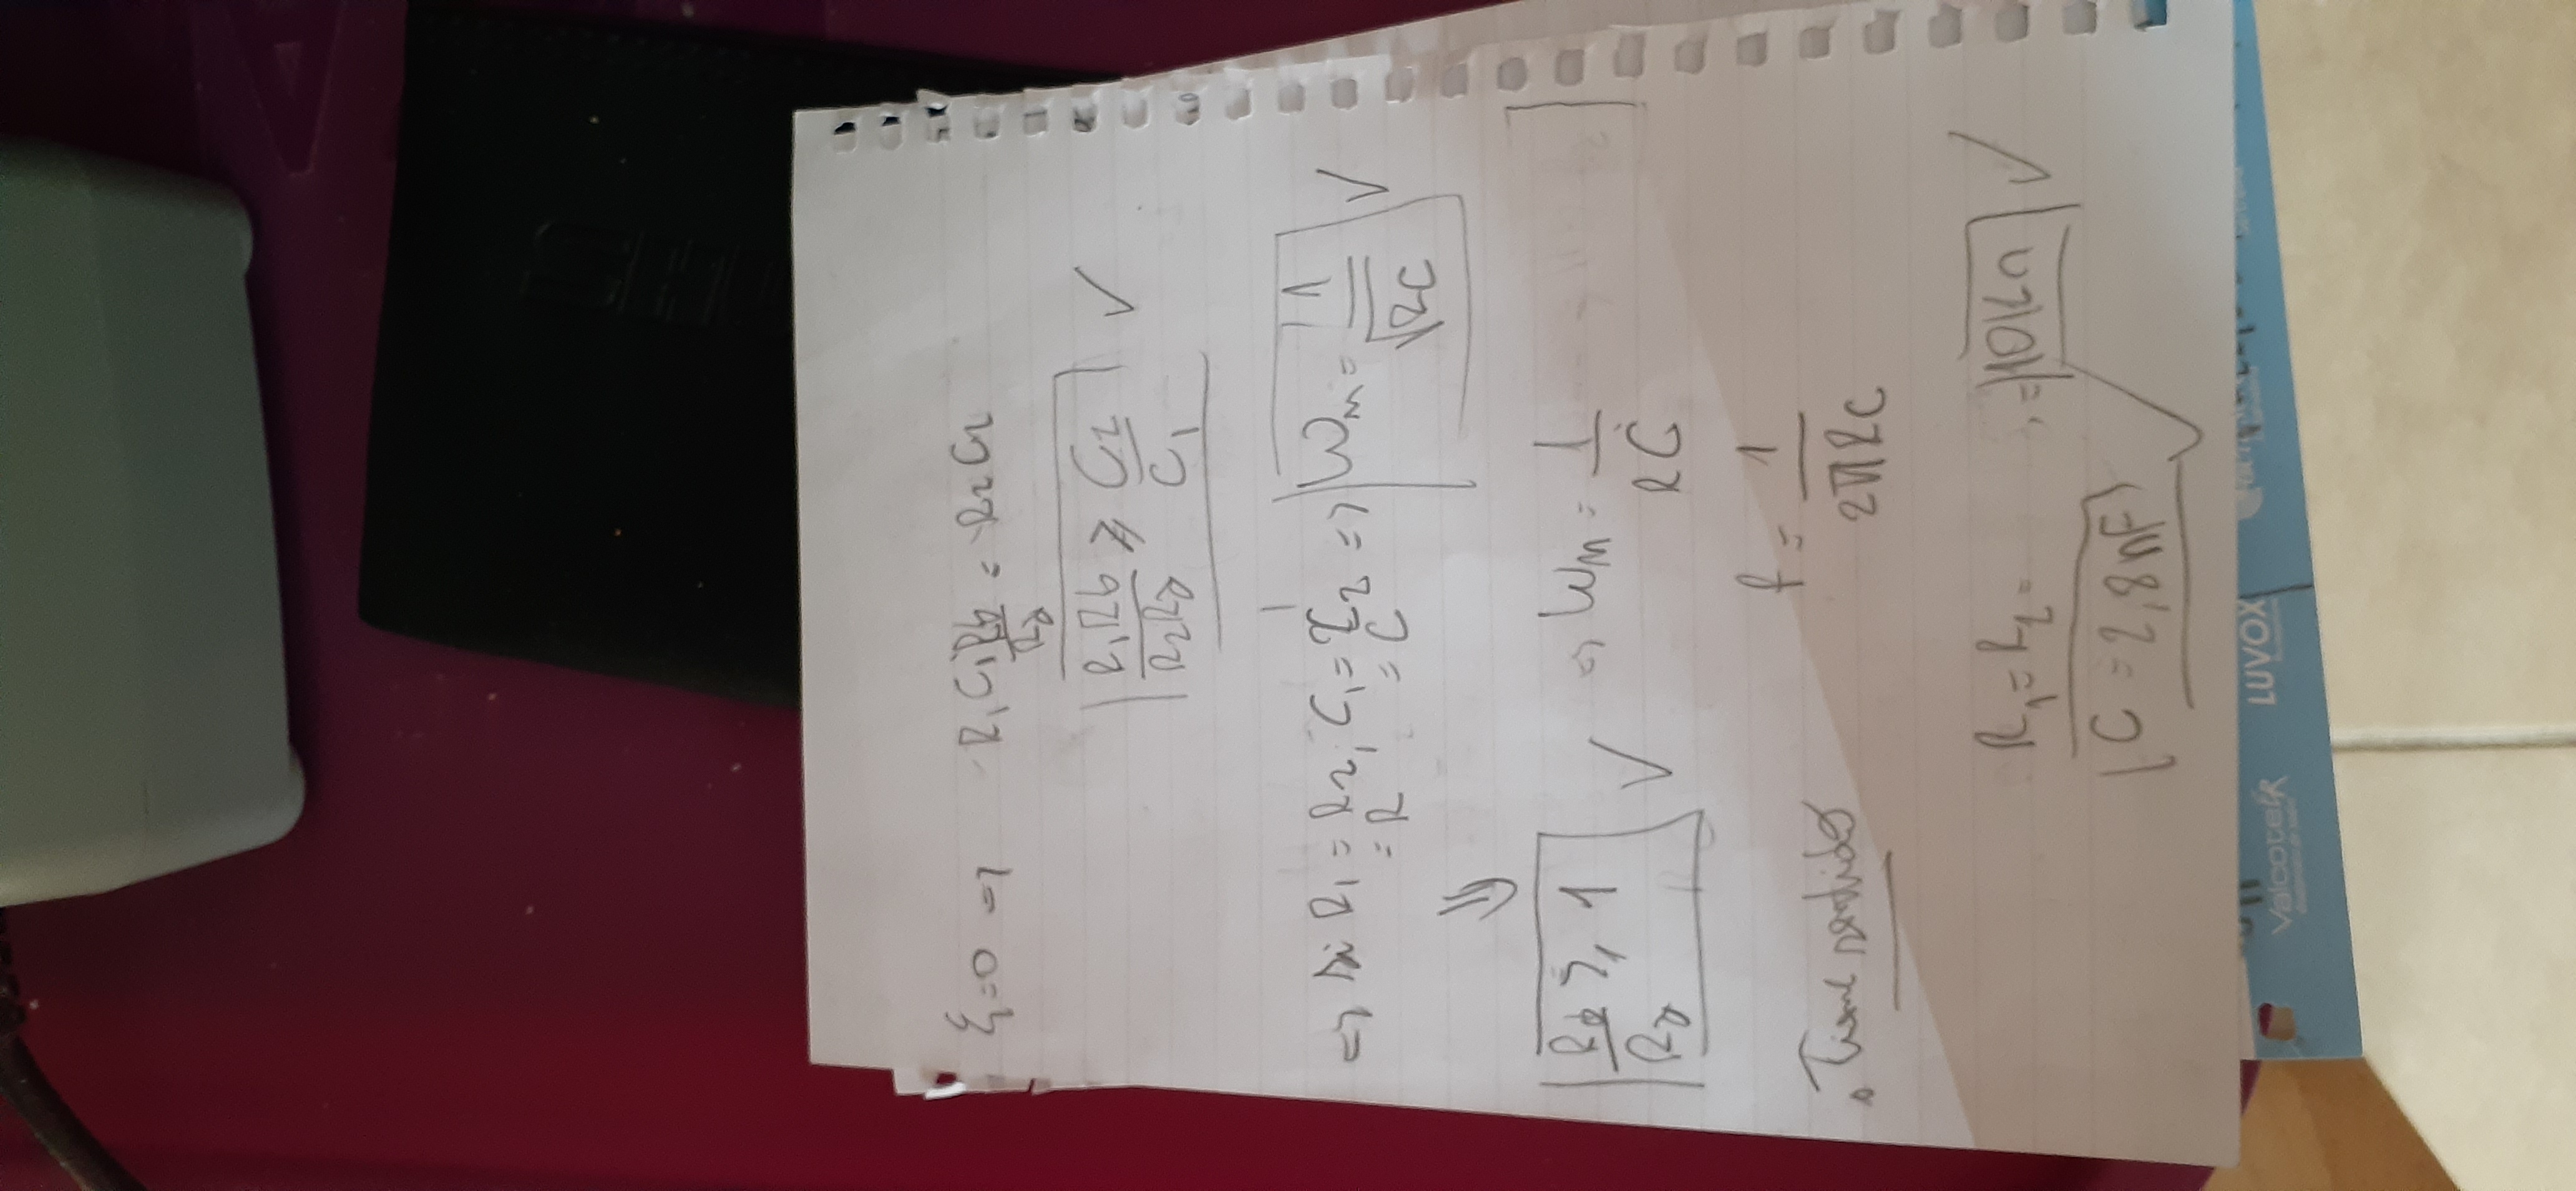 ξ=0 => R₁C₁Rb/Ra = R₂C₂
R₁Rb/R₂Ra ⩾ C₂/C₁ ✓
=> si R₁ = R₂, C₁ = C₂ => Wm = 1/√RC ✓
= R = C
⇓
Rb/Ra ⩾ 1 ✓ => Wm = 1/RC
f = 1/2πRC
Tiene sentido
R₁ = R₂ = = 10KΩ ✓
C = 2,8nF ✓
Valcote ER
LUVOX